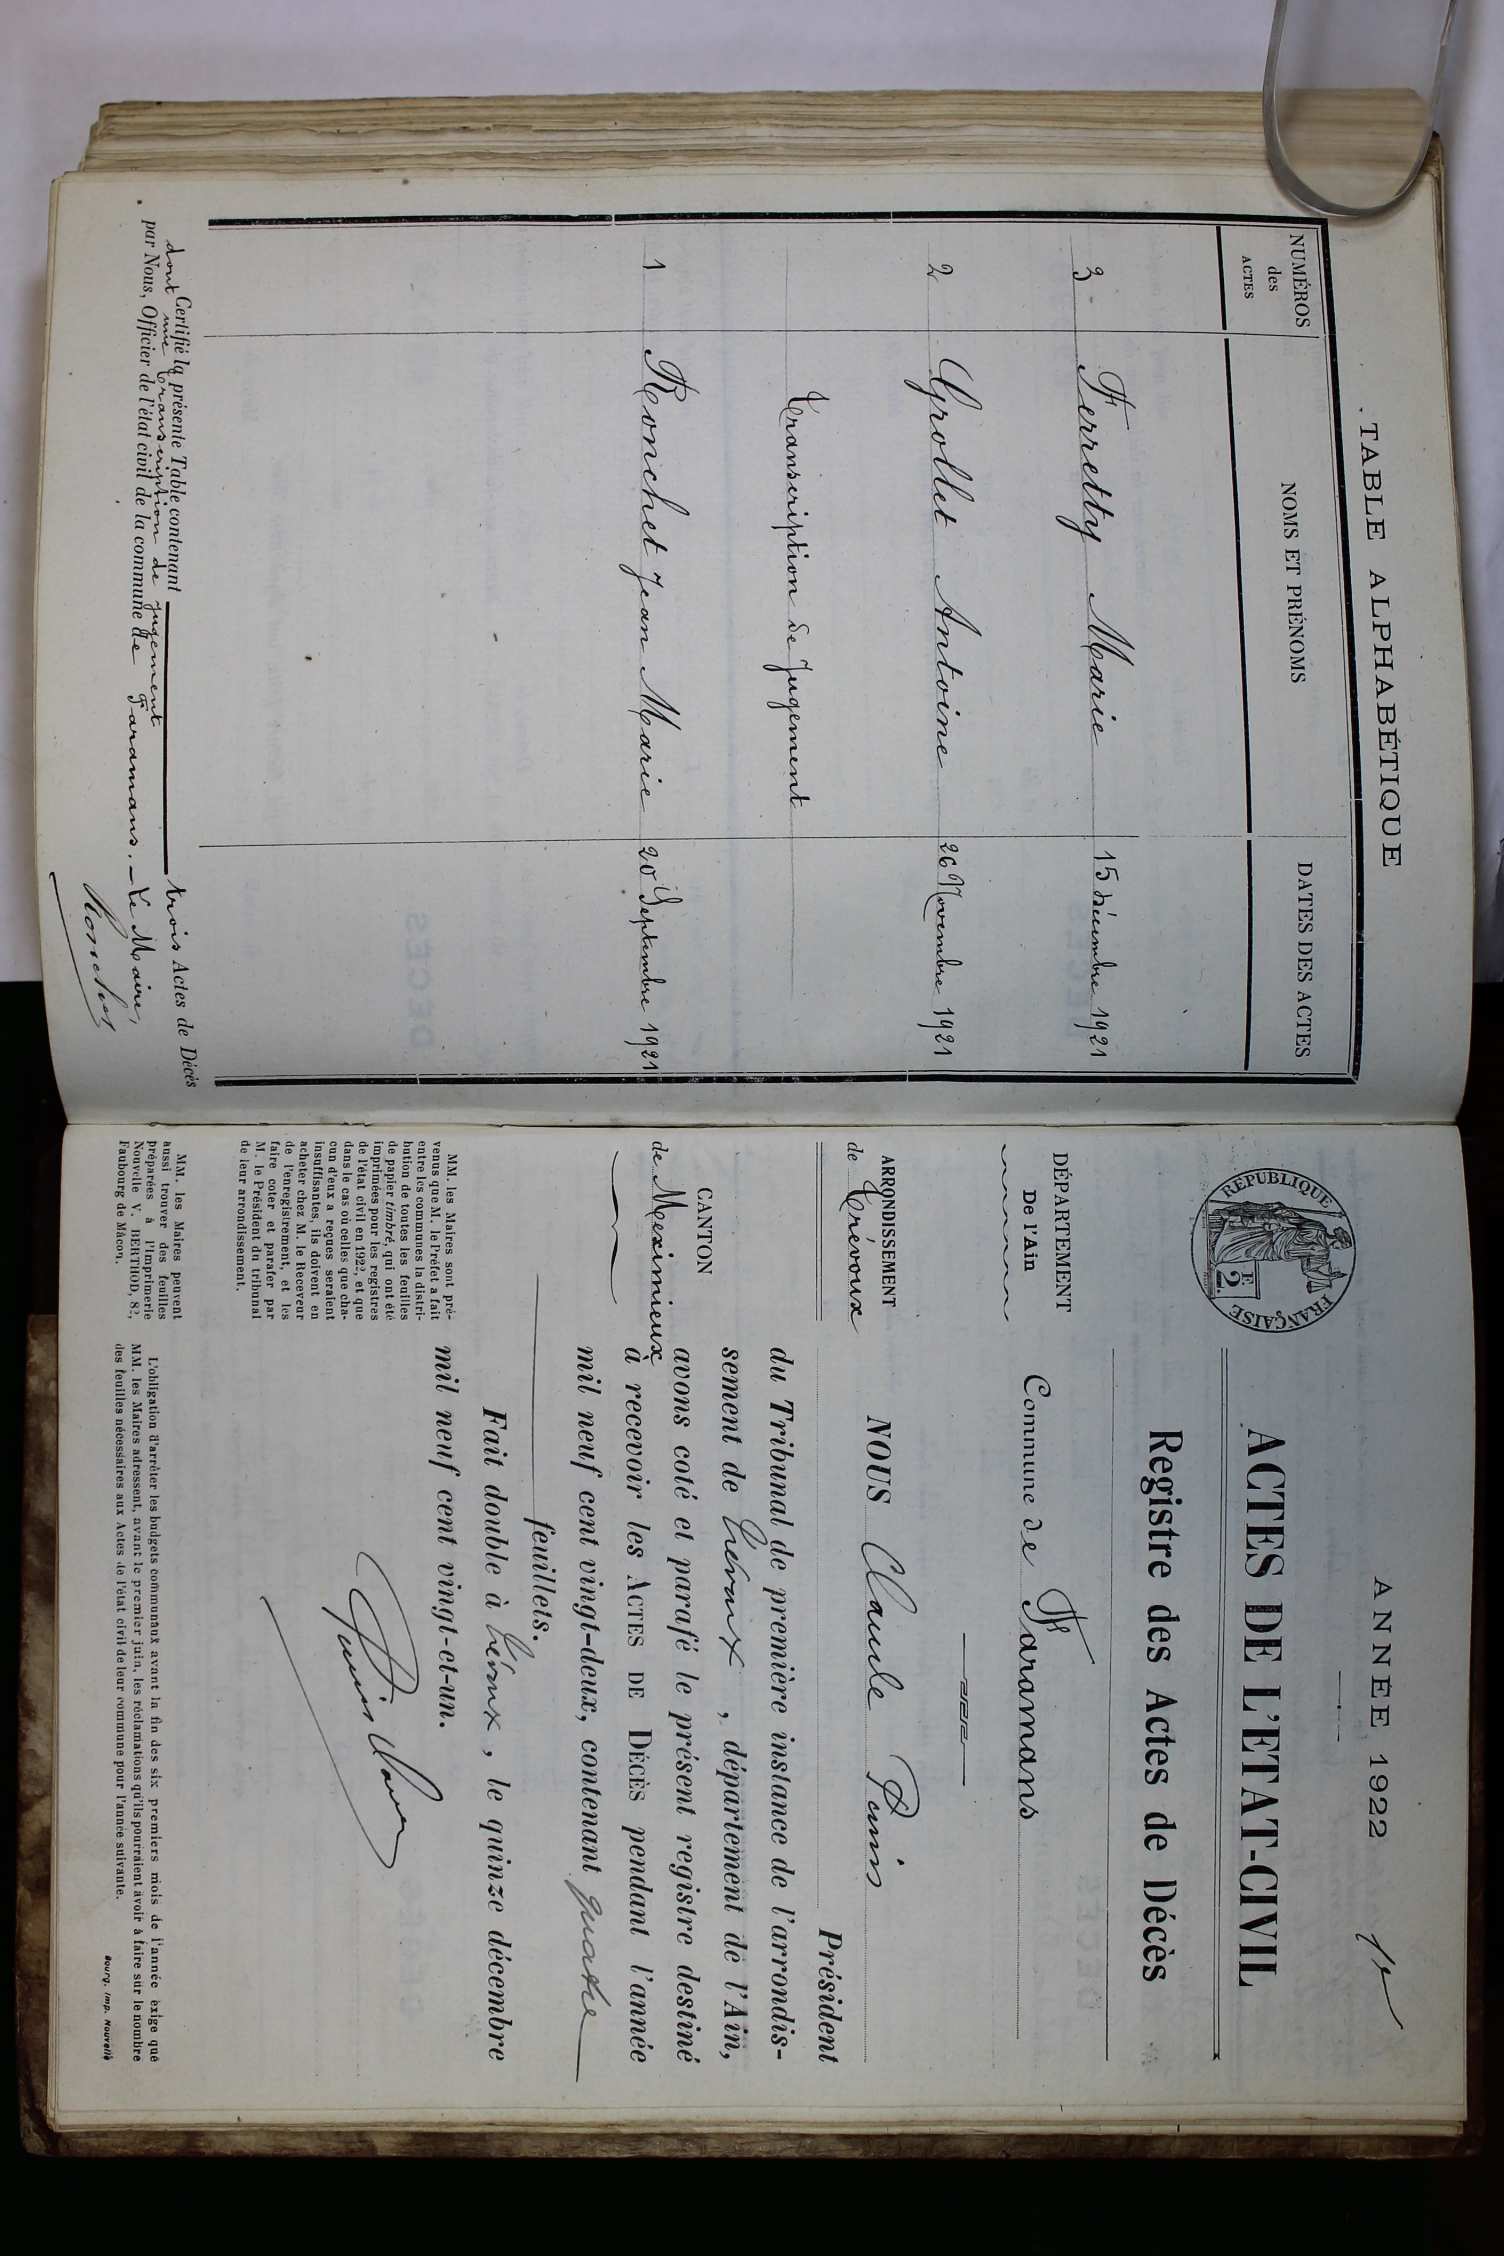 TABLE ALPHABÉTIQUE
NUMÉROS
des
ACTES
NOMS ET PRÉNOMS
DATES DES ACTES
3 Ferretty Marie 15 décembre 1921
2 Grollet Antoine 26 Novembre 1921
Transcription de Jugement
1 Ronchet Jean Marie 20 Septembre 1921
Certifié la présente Table contenant trois Actes de Décès
dont une transcription de jugement
par Nous, Officier de l'état civil de la commune de Faramans. – Le Maire,
Ronchet
ANNÉE 1922
RÉPUBLIQUE FRANÇAISE
2 F.
ACTES DE L'ETAT-CIVIL
Registre des Actes de Décès
DÉPARTEMENT
De l'Ain
Commune de Faramans
ARRONDISSEMENT
de Trévoux
CANTON
de Meximieux
NOUS Claude
Président
du Tribunal de première instance de l'arrondis-
sement de Trévoux, département de l'Ain,
avons coté et parafé le présent registre destiné
à recevoir les ACTES DE DÉCÈS pendant l'année
mil neuf cent vingt-deux, contenant quatre
feuillets.
Fait double à Trévoux, le quinze décembre
mil neuf cent vingt-et-un.
MM. les Maires sont pré-
venus que M. le Préfet a fait
entre les communes la distri-
bution de toutes les feuilles
de papier timbré, qui ont été
imprimées pour les registres
de l'état civil en 1922, et que
dans le cas où celles que cha-
cun d'eux a reçues seraient
insuffisantes, ils doivent en
acheter chez M. le Receveur
de l'enregistrement, et les
faire coter et parafer par
M. le Président du tribunal
de leur arrondissement.
MM. les Maires peuvent
aussi trouver des feuilles
préparées à l'Imprimerie
Nouvelle V. BERTHOD, 82,
Faubourg de Mâcon.
L'obligation d'arrêter les budgets communaux avant la fin des six premiers mois de l'année exige que
MM. les Maires adressent, avant le premier juin, les réclamations qu'ils pourraient avoir à faire sur le nombre
des feuilles nécessaires aux Actes de l'état civil de leur commune pour l'année suivante.
Bourg, Imp. Nouvelle